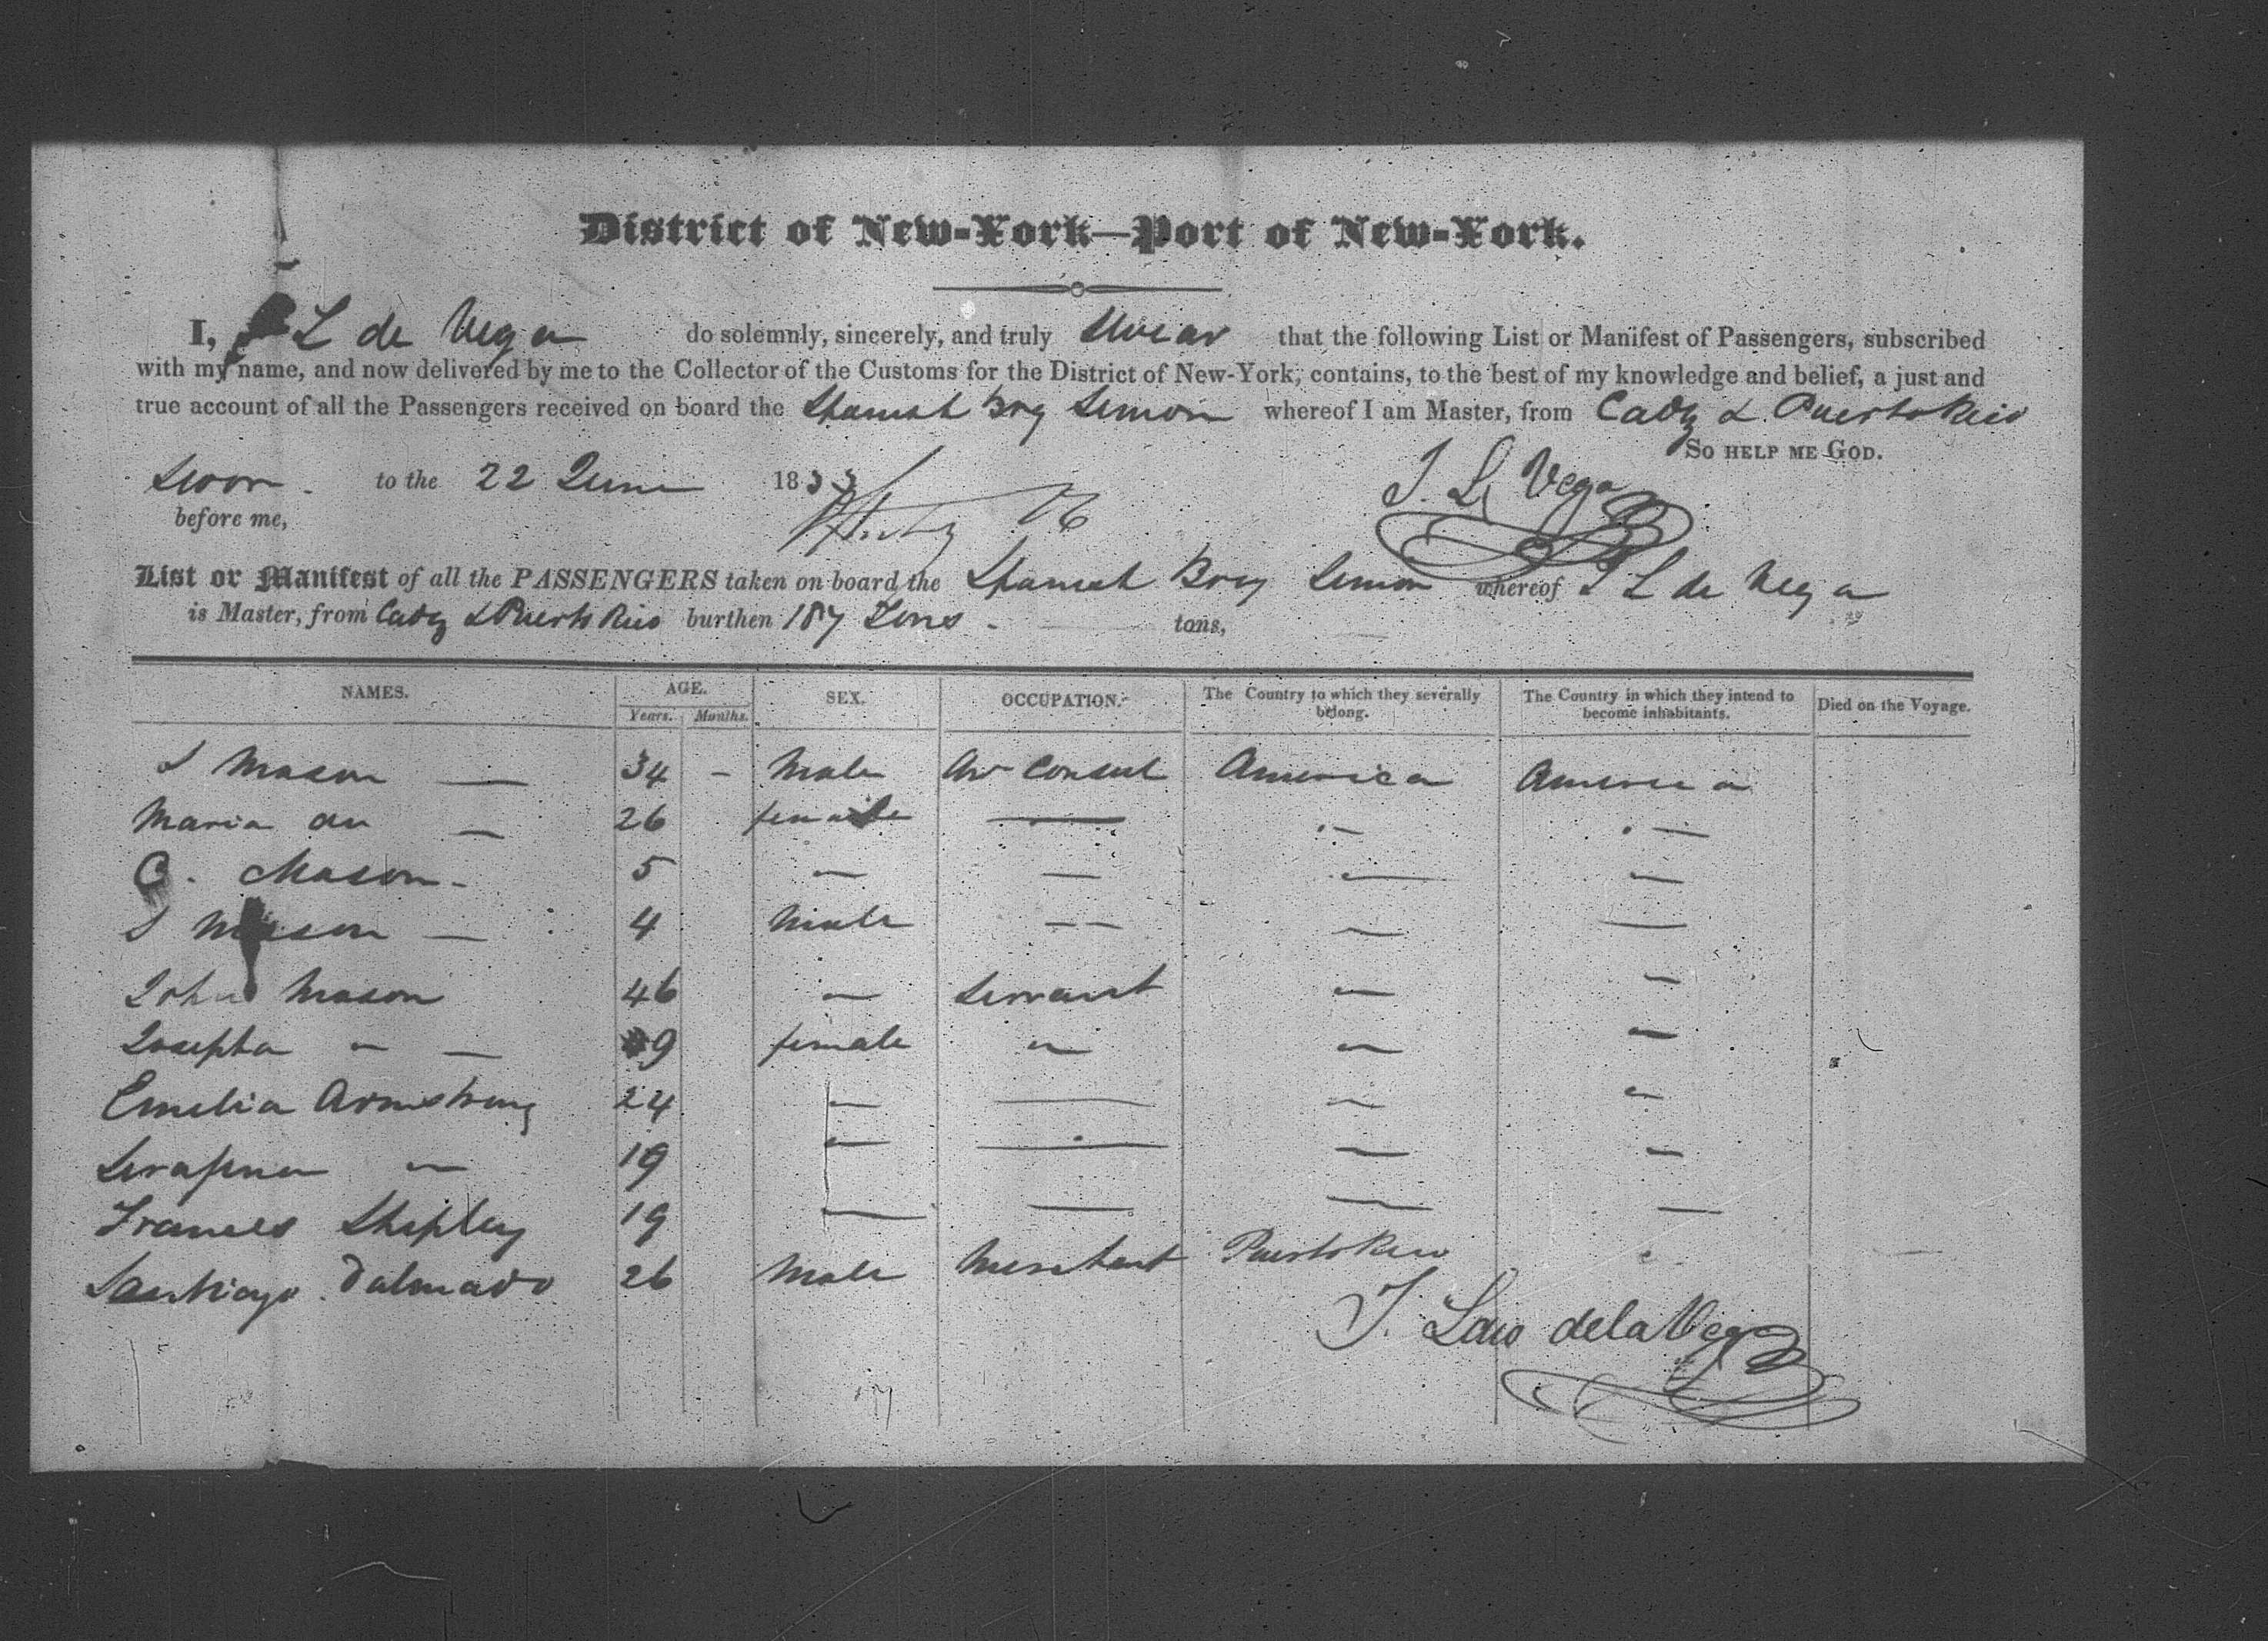 District of New-York—Port of New-York.
I, L de Vega do solemnly, sincerely, and truly Swear that the following List or Manifest of Passengers, subscribed
with my name, and now delivered by me to the Collector of the Customs for the District of New-York, contains, to the best of my knowledge and belief, a just and
true account of all the Passengers received on board the Spanish Brig Simon whereof I am Master, from Cadiz & Puerto Rico
So help me God.
Swor to the 22 June 1833 J. L. Vega
before me,
List or Manifest of all the PASSENGERS taken on board the Spanish Brig Simon whereof J L de Vega
is Master, from Cadiz & Puerto Rico burthen 187 Tons tons,
NAMES. AGE. SEX. OCCUPATION. The Country to which they severally belong. The Country in which they intend to become inhabitants. Died on the Voyage.
Years. Months.
S Mason — 34 - Male Consul America America
Maria — 26 female — — —
C. Mason - 5 — — — —
S Mason — 4 Male — — —
John Mason 46 — Servant — —
Josepha " — 9 female " — —
Emelia Armstrong 24 — — — —
Serafina " 19 — — — —
Frances Shipley 19 — — — —
Santiago Dalmado 26 Male Merchant Puerto Rico
J. de la Vega